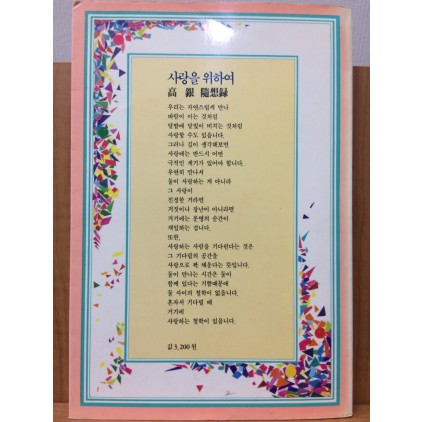 사랑을 위하여
高 銀 隨想録
우리는 자연스럽게 만나
바람이 이는 것처럼
달밤에 달빛이 비치는 것처럼
사랑할 수도 있읍니다.
그러나 깊이 생각해보면
사랑에는 반드시 어떤
극적인 계기가 있어야 합니다.
우연히 만나서
둘이 사랑하는 게 아니라
그 사랑이
진정한 거라면
거짓이나 장난이 아니라면
거기에는 운명의 순간이
개입하는 겁니다.
또한,
사랑하는 사람을 기다린다는 것은
그 기다림의 공간을
사랑으로 꽉 채운다는 뜻입니다.
둘이 만나는 시간은 둘이
함께 있다는 기쁨때문에
둘 사이의 철학이 없읍니다.
혼자서 기다릴 때
거기에
사랑하는 철학이 있읍니다.
값 3,200원